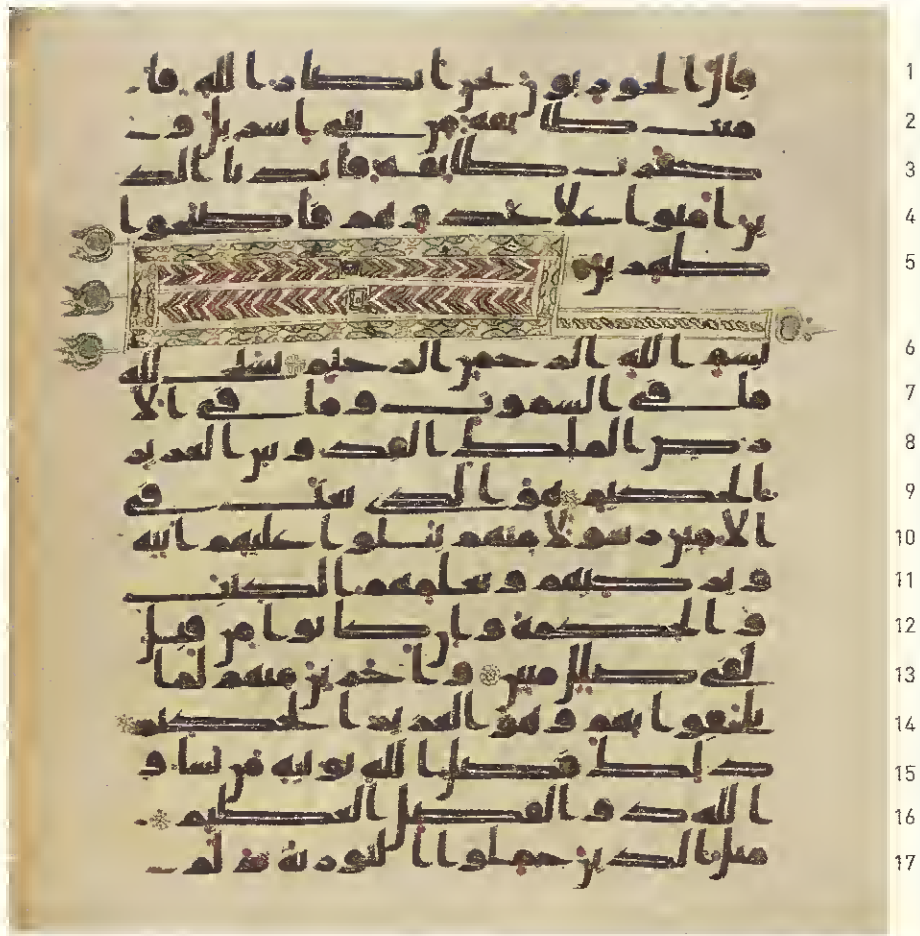 قال الحوريون نحن انصار الله فا 1
منت طايفة من بني اسريل و 2
كفرت طايفة فايدنا الذ 3
ين امنوا علا عدوهم فاصبحوا 4
ظهرين 5
بسم الله الرحمن الرحيم يسبح لله 6
ما في السموت وما في الا 7
رض الملك القدوس العزيز 8
الحكيم هو الذي بعث في 9
الامين رسولا منهم يتلوا عليهم ايته 10
ويزكيهم ويعلمهم الكتب 11
والحكمة وان كانوا من قبل 12
لفي ضلل مبين واخرين منهم لما 13
يلحقوا بهم وهو العزيز الحكيم 14
ذلك فضل الله يوتيه من يشا و 15
الله ذو الفضل العظيم 16
مثل الذين حملوا التورية ثم لم 17